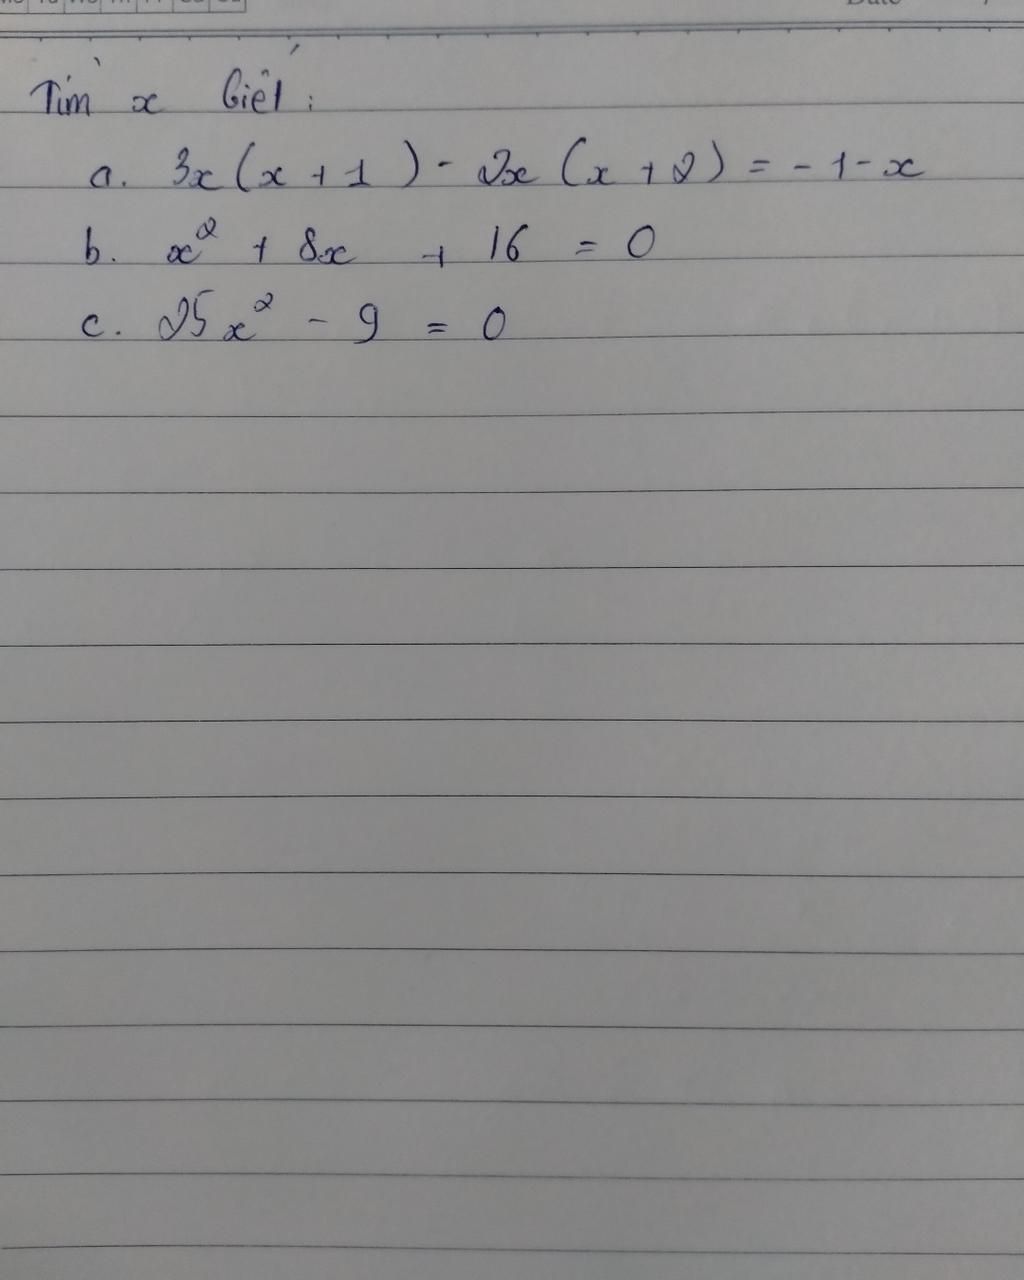 Date
Tìm x biết :
a. 3x(x + 1) - 2x (x + 2) = - 1 - x
b. x² + 8x + 16 = 0
c. 25x² - 9 = 0